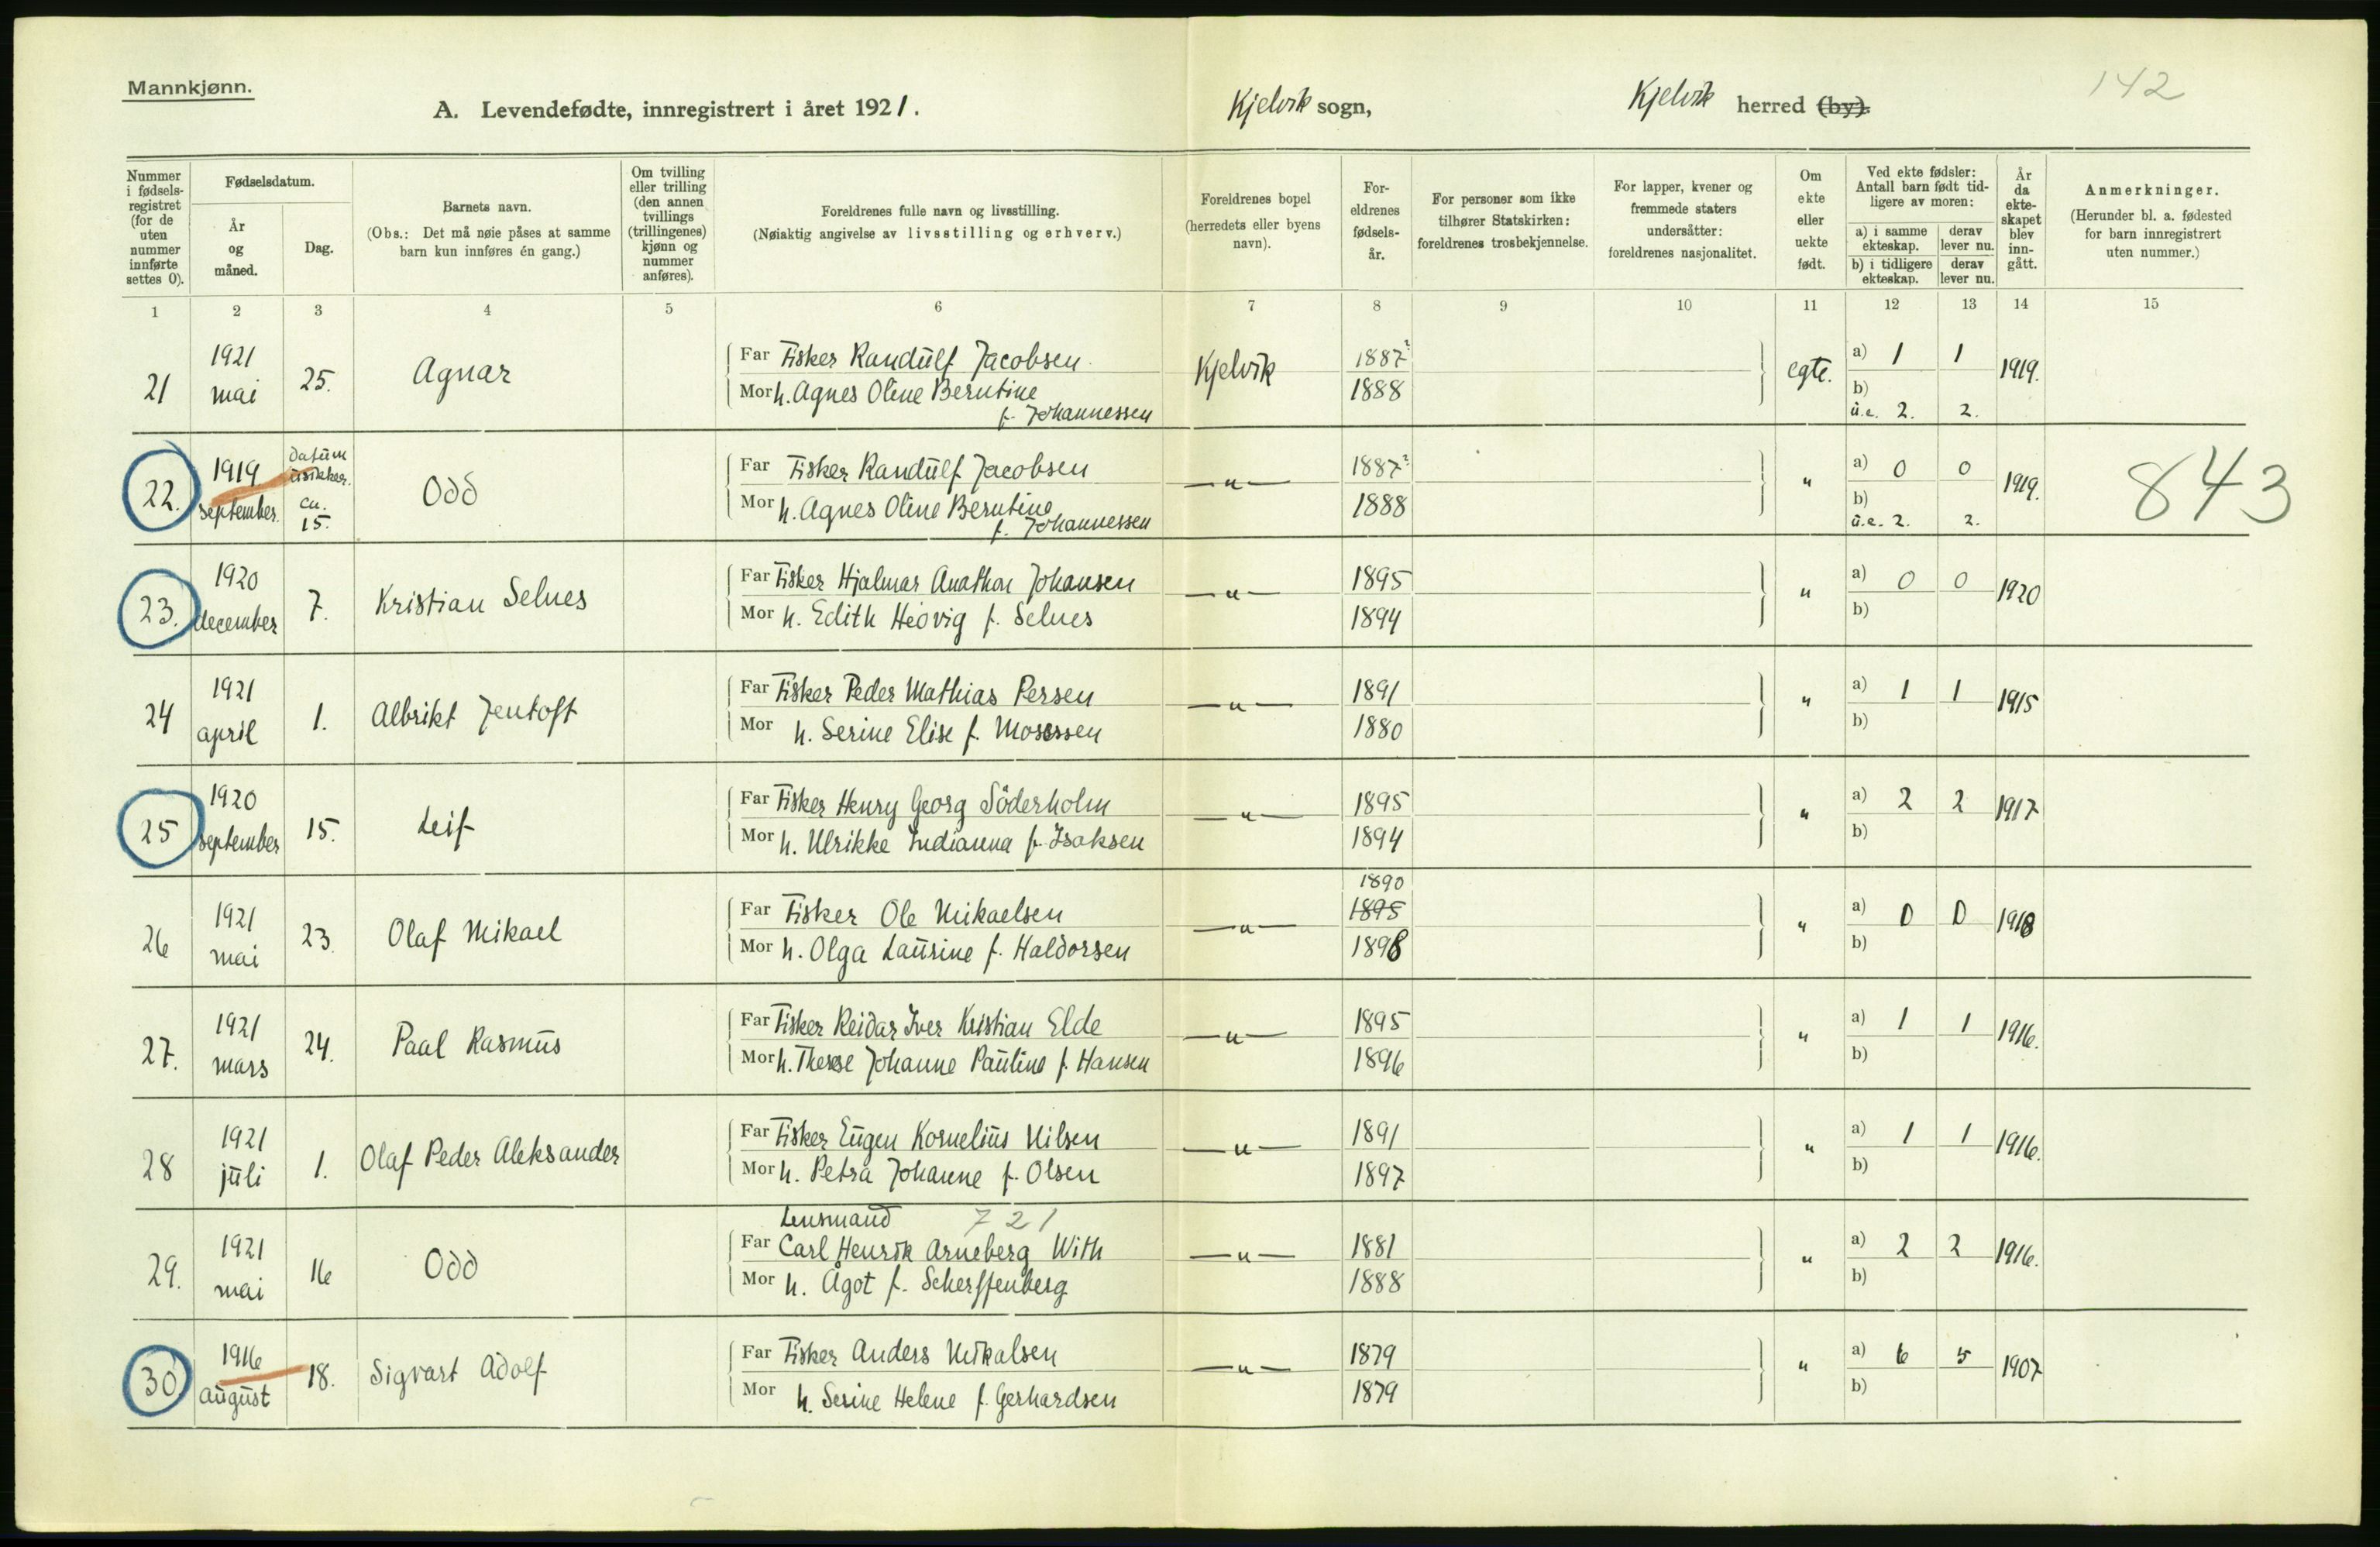 Mannkjønn.
A. Levendefødte, innregistrert i året 1921.
Kjelvik sogn,
Kjelvik herred (by).
142
Nummer i fødsels-registret (for de uten nummer innførte settes 0).
Fødselsdatum.
År og måned.
Dag.
Barnets navn.
(Obs.: Det må nøie påses at samme barn kun innføres én gang.)
Om tvilling eller trilling (den annen tvillings (trillingenes) kjønn og nummer anføres).
Foreldrenes fulle navn og livsstilling.
(Nøiaktig angivelse av livsstilling og erhverv.)
Foreldrenes bopel (herredets eller byens navn).
For-eldrenes fødsels-år.
For personer som ikke tilhører Statskirken: foreldrenes trosbekjennelse.
For lapper, kvener og fremmede staters undersåtter: foreldrenes nasjonalitet.
Om ekte eller uekte født.
Ved ekte fødsler: Antall barn født tid-ligere av moren:
a) i samme ekteskap. derav lever nu.
b) i tidligere ekteskap. derav lever nu.
År da ekte-skapet blev inn-gått.
Anmerkninger.
(Herunder bl. a. fødested for barn innregistrert uten nummer.)
1 2 3 4 5 6 7 8 9 10 11 12 13 14 15
21 1921 mai 25. Agnar
Far Fisker Randulf Jacobsen Kjelvik 1887? egte. a) 1 1 1919.
Mor h. Agnes Oline Berntine f. Johannessen 1888 b)
u.e. 2. 2.
22. 1919 september. datum usikker. ca. 15. Odd
Far Fisker Randulf Jacobsen —"— 1887? " a) 0 0 1919. 843
Mor h. Agnes Oline Berntine f. Johannessen 1888 b)
u.e. 2. 2.
23. 1920 december 7. Kristian Selnes
Far Fisker Hjalmar Anathon Johansen —"— 1895 " a) 0 0 1920
Mor h. Edith Hedvig f. Selnes 1894 b)
24 1921 april 1. Albrikt Jentoft
Far Fisker Peder Mathias Persen —"— 1891 " a) 1 1 1915
Mor h. Serine Elise f. Mosessen 1880 b)
25 1920 september 15. Leif
Far Fisker Henry Georg Söderholm —"— 1895 " a) 2 2 1917
Mor h. Ulrikke Indianna f. Isaksen 1894 b)
26 1921 mai 23. Olaf Mikael
1890
Far Fisker Ole Mikaelsen —"— 1895 " a) 0 0 1918
Mor h. Olga Laurine f. Haldorsen 1898 b)
27. 1921 mars 24. Paal Rasmus
Far Fisker Reidar Iver Kristian Elde —"— 1895 " a) 1 1 1916.
Mor h. Therese Johanne Pauline f. Hansen 1896 b)
28 1921 juli 1. Olaf Peder Aleksander
Far Fisker Eugen Kornelius Nilsen —"— 1891 " a) 1 1 1916.
Mor h. Petra Johanne f. Olsen 1897 b)
29. 1921 mai 16 Odd
Lensmand 721
Far Carl Henrik Arneberg With —"— 1881 " a) 2 2 1916.
Mor h. Ågot f. Scherffenberg 1888 b)
30 1916 august 18. Sigvart Adolf
Far Fisker Anders Mikalsen —"— 1879 " a) 6 5 1907
Mor h. Serine Helene f. Gerhardsen 1879 b)